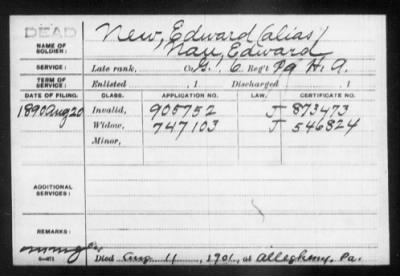 DEAD
NAME OF SOLDIER: New, Edward (alias)
Nau, Edward
SERVICE: Late rank, Co. G, 6 Reg't Pa H. A.
TERM OF SERVICE: Enlisted , 1 Discharged , 1
DATE OF FILING. CLASS. APPLICATION NO. LAW. CERTIFICATE NO.
1890 Aug 20 Invalid, 905752 J 873473
Widow, 747103 J 546824
Minor,
ADDITIONAL SERVICES:
REMARKS:
Died Aug 11, 1901, at Allegheny, Pa.